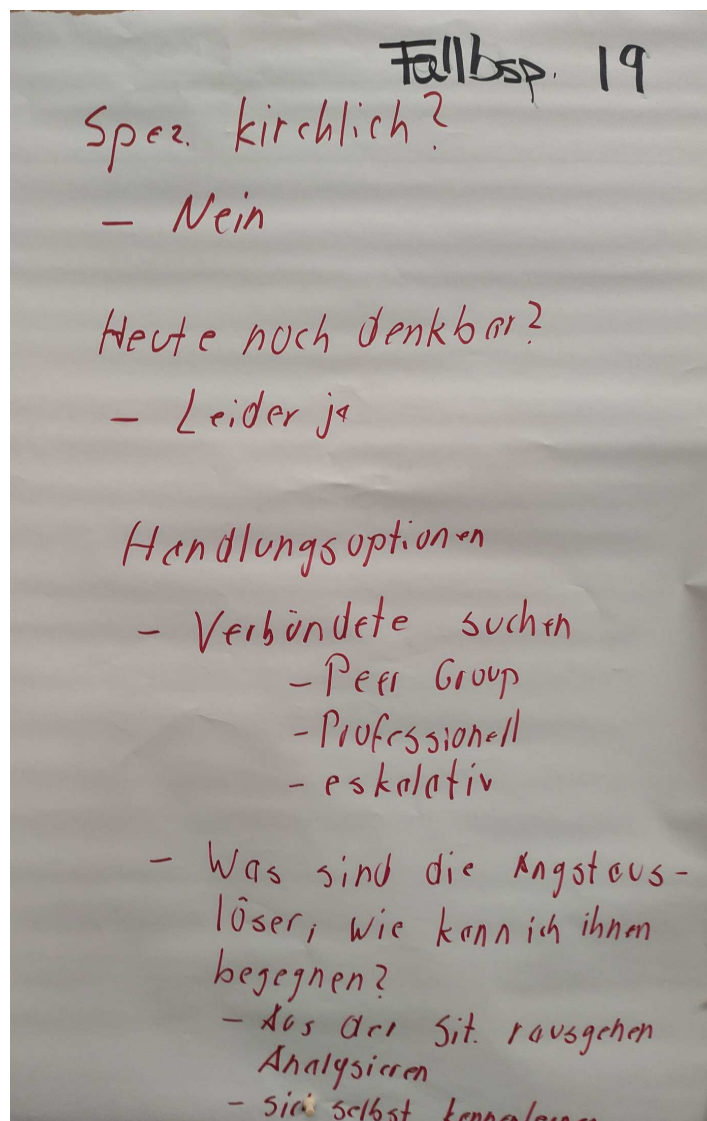 Fallbsp. 19
Spez. kirchlich?
- Nein
Heute noch denkbar?
- Leider ja
Handlungsoptionen
- Verbündete suchen
- Peer Group
- Professionell
- eskalativ
- Was sind die Angstaus-
löser, wie kann ich ihnen
begegnen?
- Aus der Sit. rausgehen
Analysieren
- sich selbst kennenlernen